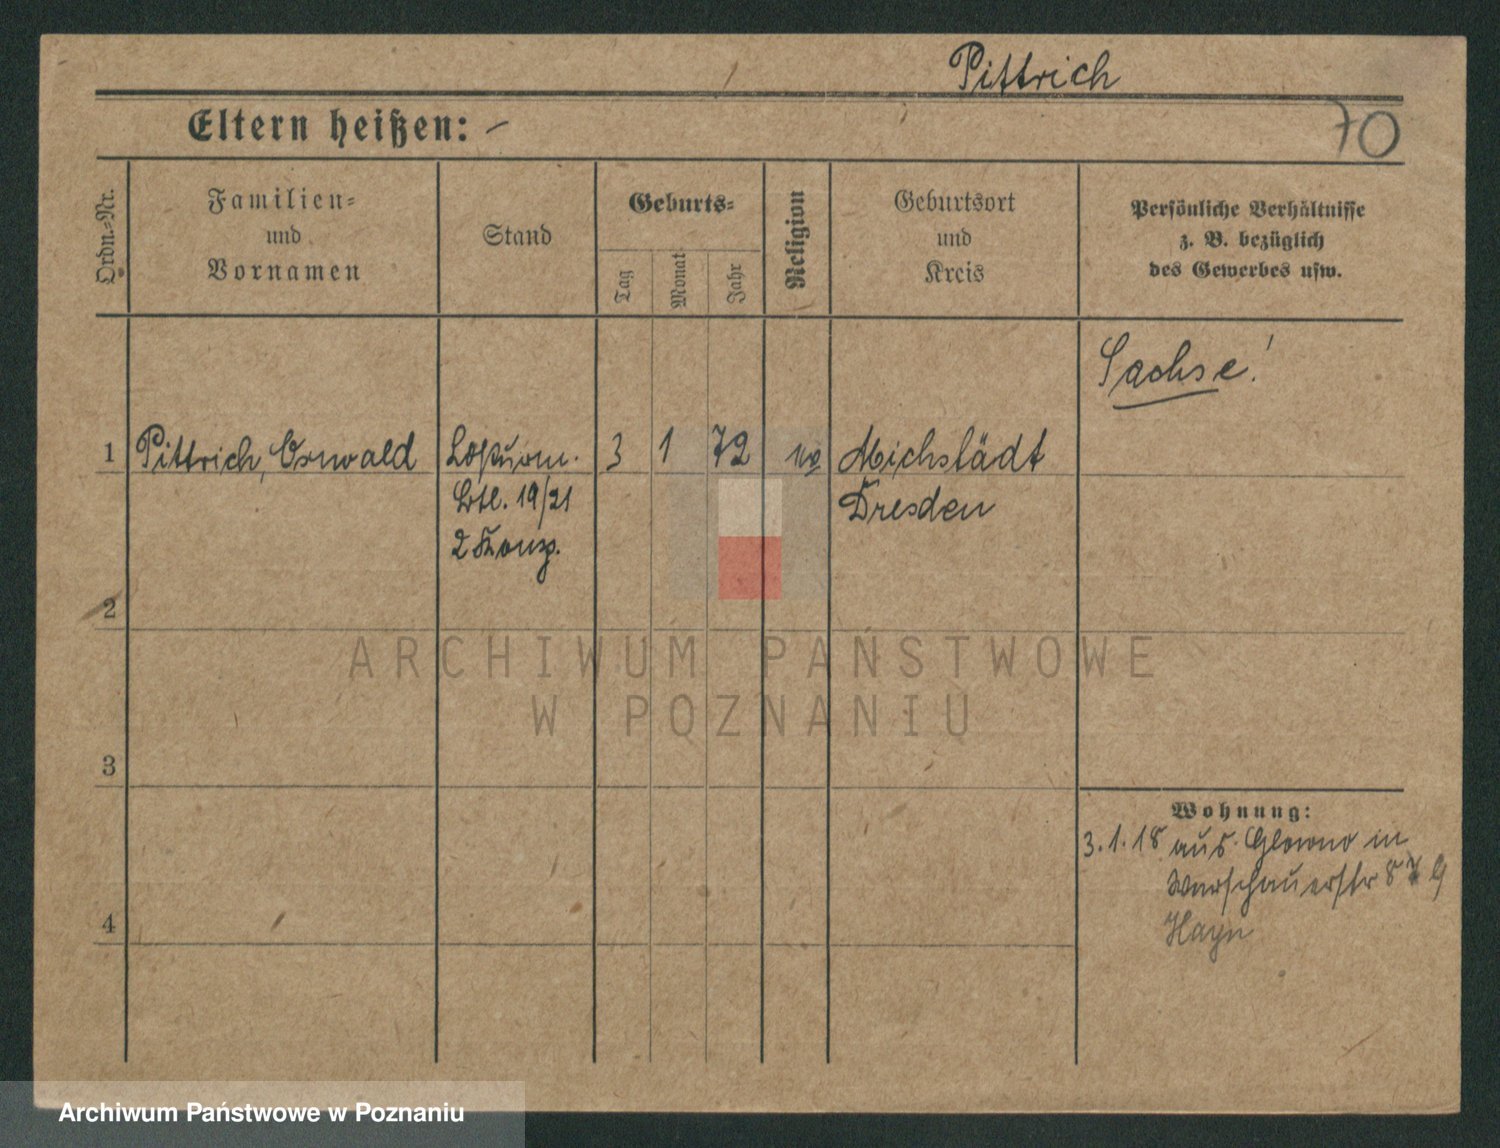 Pittrich
Eltern heißen: –
70
Ordn.-Nr.
Familien-
und
Vornamen
Stand
Geburts-
Tag
Monat
Jahr
Religion
Geburtsort
und
Kreis
Persönliche Verhältnisse
z. B. bezüglich
des Gewerbes usw.
Sachse!
1 Pittrich, Oswald 3 1 72
Btl. 19/21 Dresden
2 Komp.
2
3
4
Wohnung:
3.1.18 aus Glowno in
Warschauerstr
Hayn
ARCHIWUM PAŃSTWOWE
W POZNANIU
Archiwum Państwowe w Poznaniu